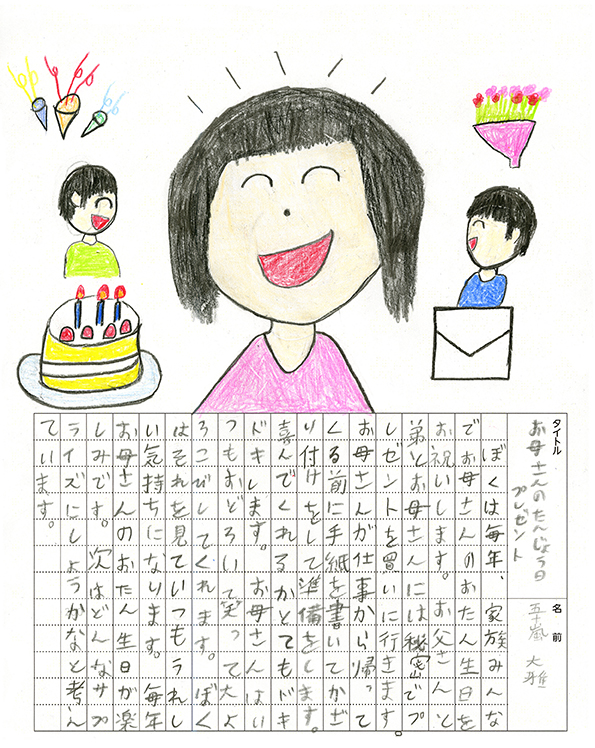 タイトル
お母さんのたんじょう日
プレゼント
名前
五十嵐 大雅
ぼくは毎年、家族みんな
でお母さんのおたん生日を
お祝いします。お父さんと
弟とお母さんには秘密でプ
レゼントを買いに行きます。
お母さんが仕事から帰って
くる前に手紙を書いてかざ
り付けをして準備をします。
喜んでくれるかとてもドキ
ドキします。お母さんはい
つもおどろいて笑って大よ
ろこびしてくれます。ぼく
はそれを見ていつもうれし
い気持ちになります。毎年
お母さんのおたん生日が楽
しみです。次はどんなサプ
ライズにしようかなと考え
ています。